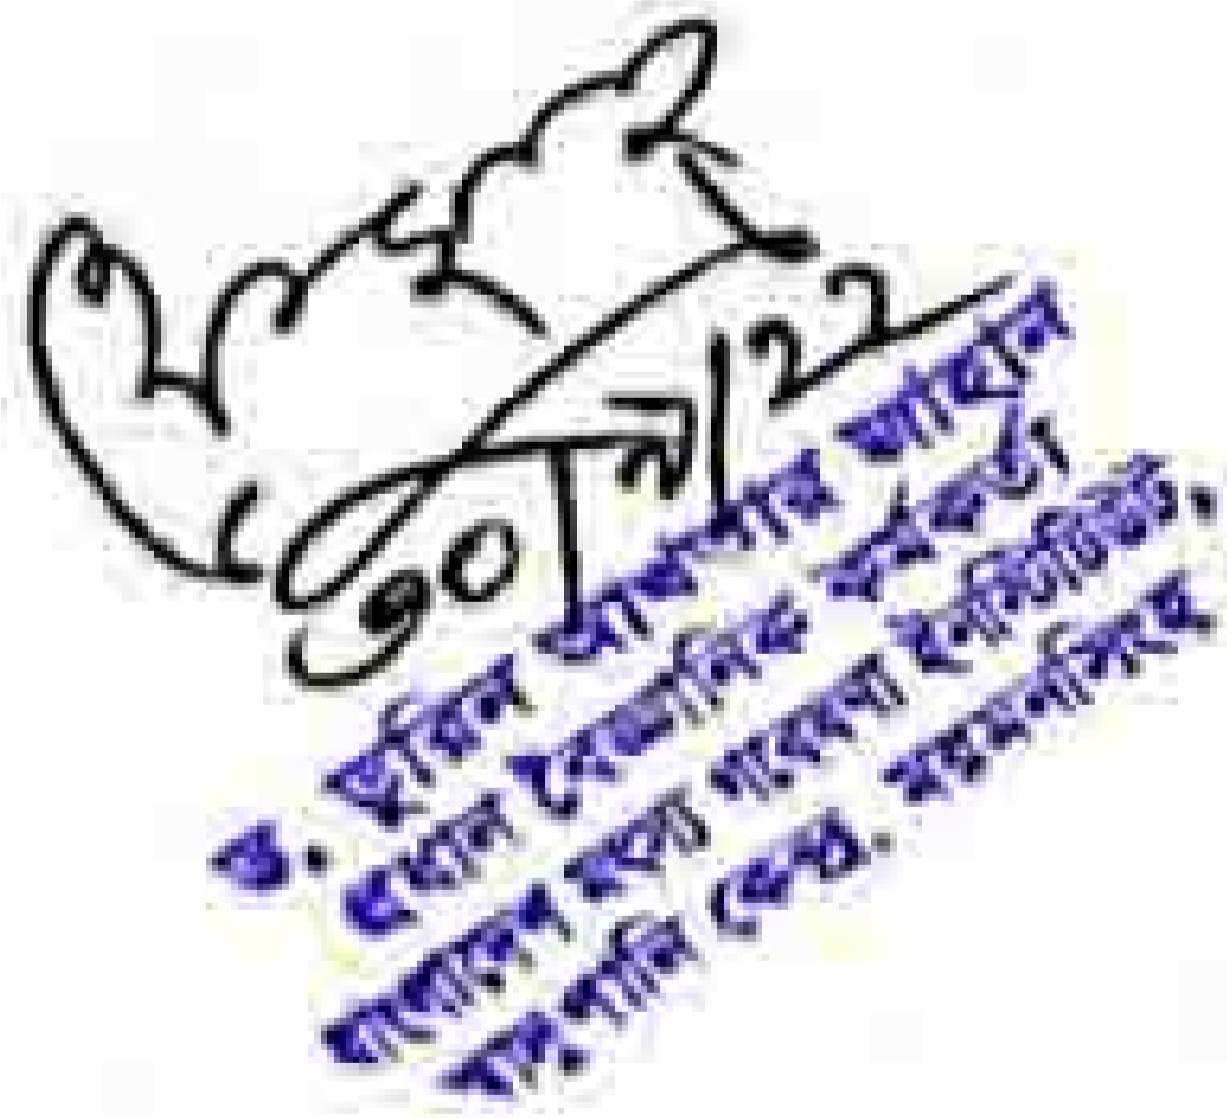 ড. ডুরিন আখতার জাহান
প্রধান বৈজ্ঞানিক কর্মকর্তা
বাংলাদেশ মৎস্য গবেষণা ইনস্টিটিউট,
স্বাদুপানি কেন্দ্র, ময়মনসিংহ